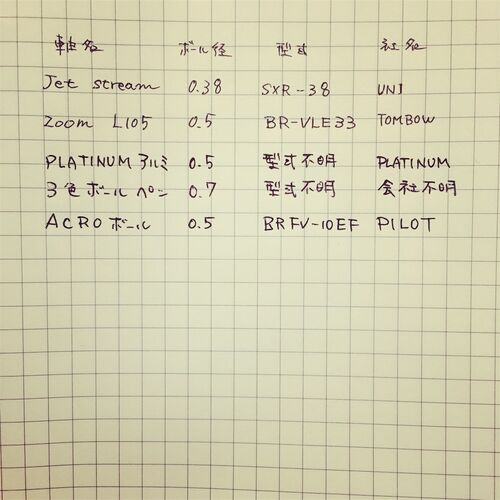 軸名 ボール径 型式 社名
Jet stream 0.38 SXR-38 UNI
ZOOM L105 0.5 BR-VLE33 TOMBOW
PLATINUM アルミ 0.5 型式不明 PLATINUM
3色ボールペン 0.7 型式不明 会社不明
ACROボール 0.5 BRFV-10EF PILOT